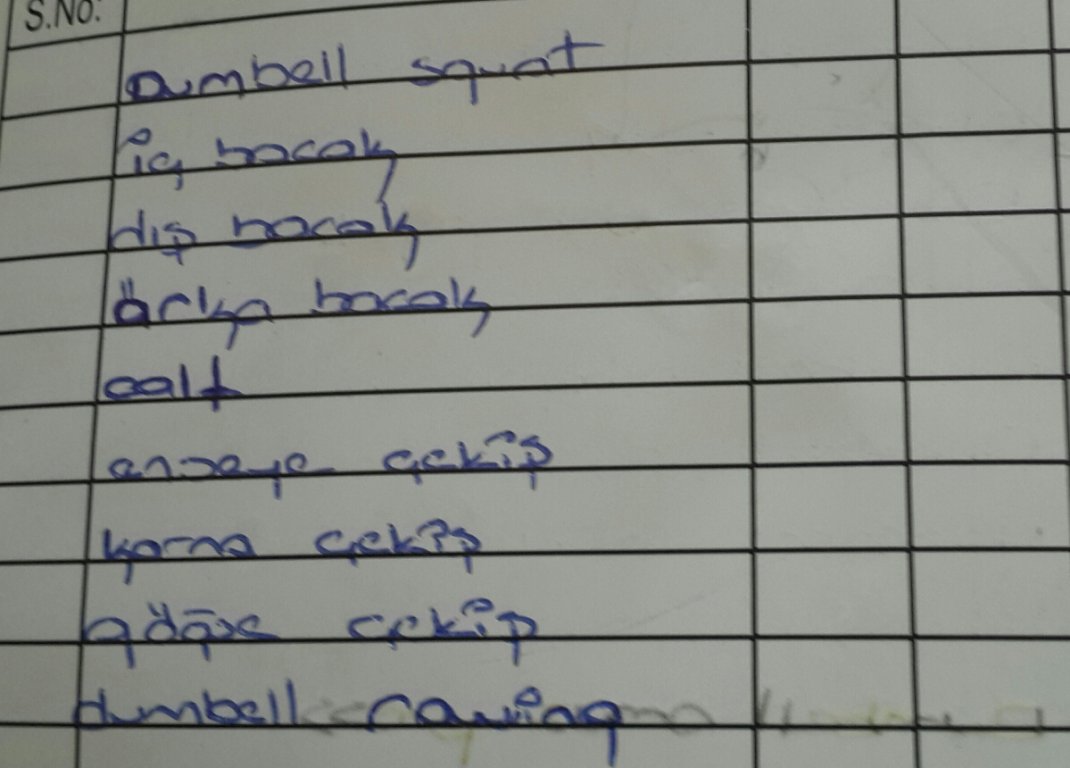 S.No:
Dumbell squat
iç bacak
dış bacak
ärka bacak
calf
enseye çekiş
karna çekiş
göğse çekiş
dumbell rowing